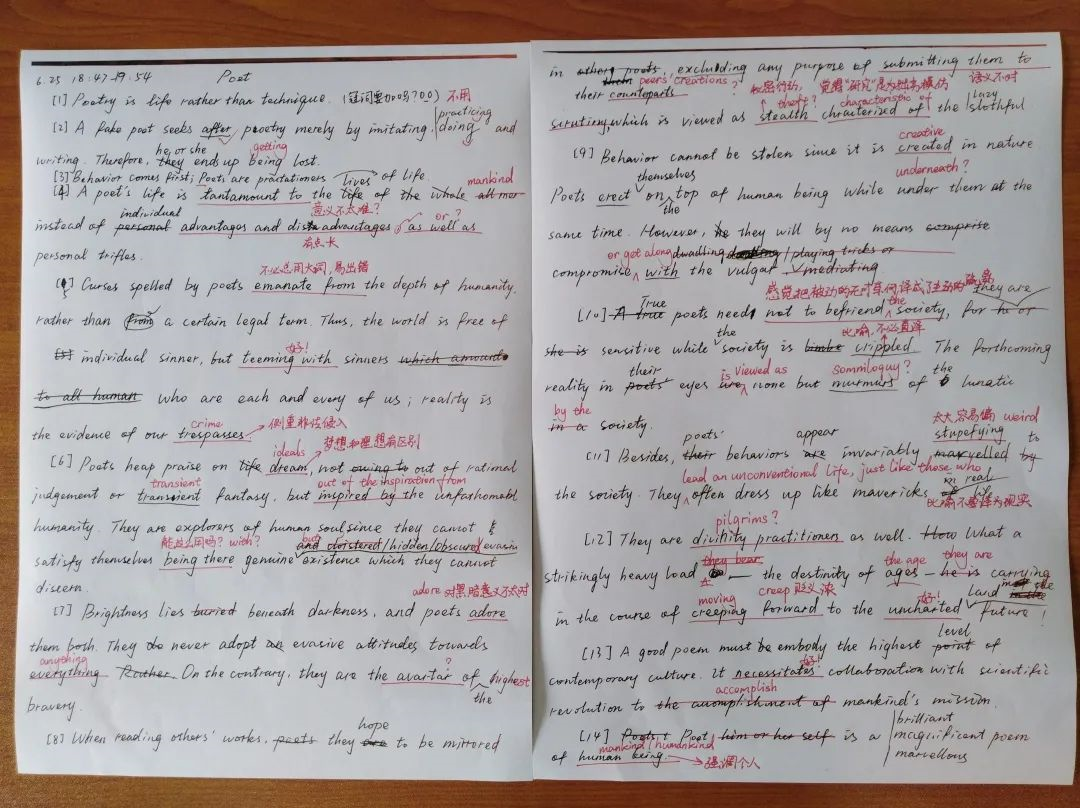 6.25 18:47-19:54 Poet
[1] Poetry is life rather than technique. (冠词要加吗?00) 不用
practicing
[2] A fake poet seeks after poetry merely by imitating, doing and
he or she getting
writing. Therefore, they ends up being lost.
[3] Behavior comes first; Poets are practationers of life.
lives mankind
[4] A poet's life is tantamount to the life of the whole
individual 意义不太难? or?
instead of personal advantages and disadvantages as well as
有点长
personal trifles.
不必总用大词,易出错
[5] Curses spelled by poets emanate from the depth of humanity.
rather than from a certain legal term. Thus, the world is free of
好!
individual sinner, but teeming with sinners which amounts
to all human who are each and every of us; reality is
crime 侧重非法侵入
the evidence of our trespasses.
ideals 梦想和理想有区别
[6] Poets heap praise on life dream, not owing to out of rational
transient out of the inspiration from
judgement or transient fantasy, but inspired by the unfathomabl
humanity. They are explorers of human soul since they cannot
能这么用吗? with? but and cloistered/hidden/obscured/evasive
satisfy themselves being there genuine existence which they cannot
discern.
adore 对黑暗意义不太对
[7] Brightness lies buried beneath darkness, and poets adore
them both. They do never adopt an evasive attitudes towards
anything ?
everything Rather. On the contrary, they are the avartar of highest
the
bravery.
hope
[8] When reading others' works, poets they are to be mirrored
in other poets, excluding any purpose of submitting them to
them peers' creations? 语义不对
their counterparts
theft? characteristic of lazy
scrutiny, which is viewed as stealth chracterized of the slothful
creative
[9] Behavior cannot be stolen since it is created in nature
themselves underneath?
Poets erect on top of human being while under them at the
the
same time. However, he they will by no means comprise
or get along dwadling /playing tricks or
compromise with the vulgar mediating.
感觉把被动的无可奈何译成了主动的
True the they are
[10] A true poets need not to befriend society, for he or
the 比喻,不必直译
she is sensitive while society is crippled. The forthcoming
their is viewed as somniloquy? the
reality in poets' eyes are none but murmurs of lunatic
by the
in a society.
poets' appear 太大容易偏 weird stupefying
[11] Besides, their behaviors are invariably marvelled by to
lead an unconventional life, just like those who in real
the society. They often dress up like mavericks life
比喻不要译为现实
pilgrims?
[12] They are divinity practitioners as well. How What a
they bear the age they are
strikingly heavy load — the destinity of ages — he is carrying
moving creep 贬义浓 好! land
in the course of creeping forward to the uncharted future!
level
[13] A good poem must be embody the highest point of
好!
contemporary culture. It necessitates collaboration with scientific
accomplish
revolution to the accomplishment of mankind's mission.
brilliant
[14] Poets Poet him or her self is a magnificient poem
mankind/humankind marvellous
of human being. 强调个人